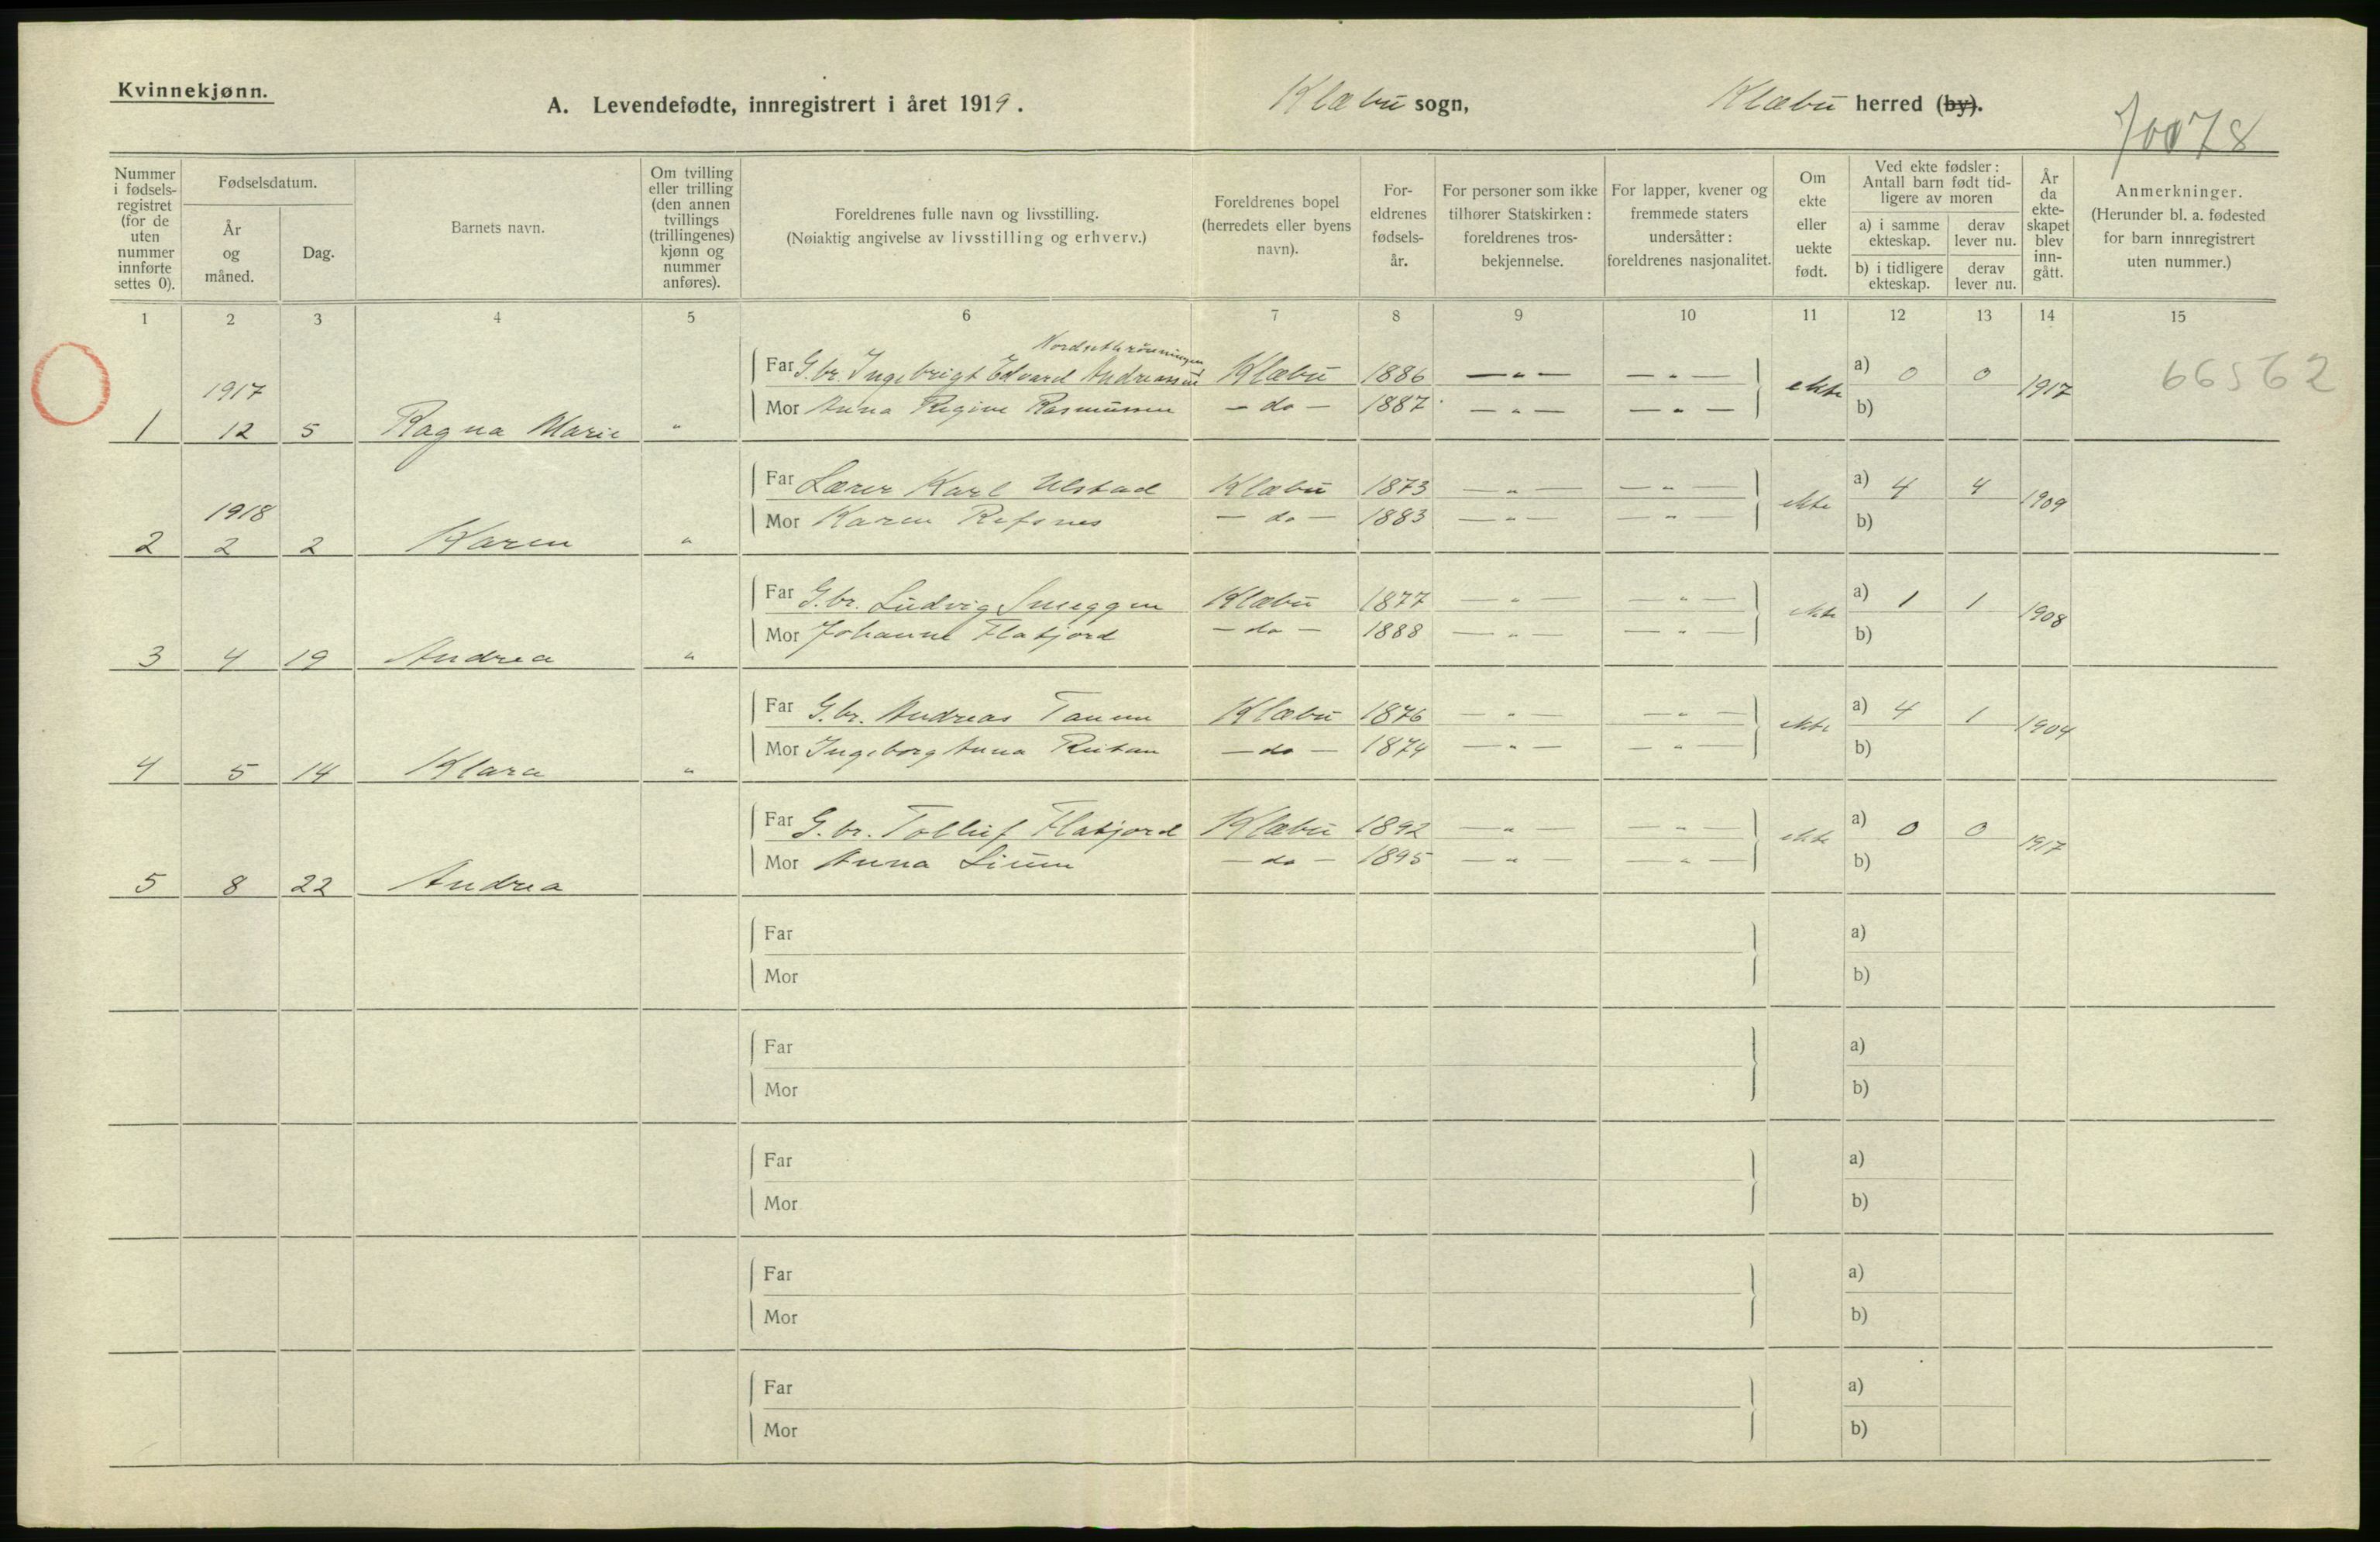 Kvinnekjønn.
A. Levendefødte, innregistrert i året 1919. Klæbu sogn, Klæbu herred (by).
Nummer i fødsels-registret (for de uten nummer innførte settes 0).
Fødselsdatum.
År og måned.
Dag.
Barnets navn.
Om tvilling eller trilling (den annen tvillings (trillingenes) kjønn og nummer anføres).
Foreldrenes fulle navn og livsstilling.
(Nøiaktig angivelse av livsstilling og erhverv.)
Foreldrenes bopel (herredets eller byens navn).
For-eldrenes fødsels-år.
For personer som ikke tilhører Statskirken: foreldrenes tros-bekjennelse.
For lapper, kvener og fremmede staters undersåtter: foreldrenes nasjonalitet.
Om ekte eller uekte født.
Ved ekte fødsler: Antall barn født tid-ligere av moren
a) i samme ekteskap.
derav lever nu.
b) i tidligere ekteskap.
derav lever nu.
År da ekte-skapet blev inn-gått.
Anmerkninger.
(Herunder bl. a. fødested for barn innregistrert uten nummer.)
1 2 3 4 5 6 7 8 9 10 11 12 13 14 15
Far G.br. Ingebrigt Edvard Andreassen Klæbu 1886 — „ — — „ — ekte a) 0 0 1917 66562
1917
Mor Anna Regine Rasmussen — do — 1887 — „ — — „ — b)
1 12 5 Ragna Marie „
Far Lærer Karl Ulstad Klæbu 1873 — „ — — „ — ekte a) 4 4 1909
1918
Mor Karen Refsnes — do — 1883 — „ — — „ — b)
2 2 2 Karen „
Far G.br. Ludvig Sneeggen Klæbu 1877 — „ — — „ — ekte a) 1 1 1908
Mor Johanne Flatjord — do — 1888 — „ — — „ — b)
3 4 19 Andrea „
Far G.br. Andreas Tanem Klæbu 1876 — „ — — „ — ekte a) 4 1 1904
Mor Ingeborg Anna Rutan — do — 1874 — „ — — „ — b)
4 5 14 Klara „
Far G.br. Tolleif Flatjord Klæbu 1892 — „ — — „ — ekte a) 0 0 1917
Mor Anna Lium — do — 1895 — „ — — „ — b)
5 8 22 Andrea
Far a)
Mor b)
Far a)
Mor b)
Far a)
Mor b)
Far a)
Mor b)
Far a)
Mor b)